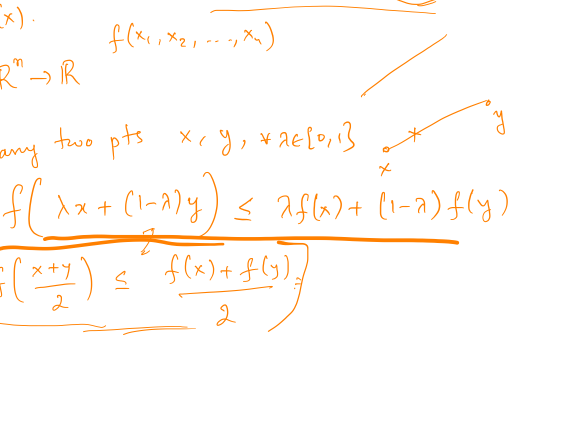 (x).
f(x₁, x₂, ..., xₙ)
ℝⁿ → ℝ
any two pts x, y, ∀ λ∈[0,1]
y
x
f(λx + (1-λ)y) ≤ λf(x) + (1-λ)f(y)
f((x+y)/2) ≤ (f(x) + f(y))/2